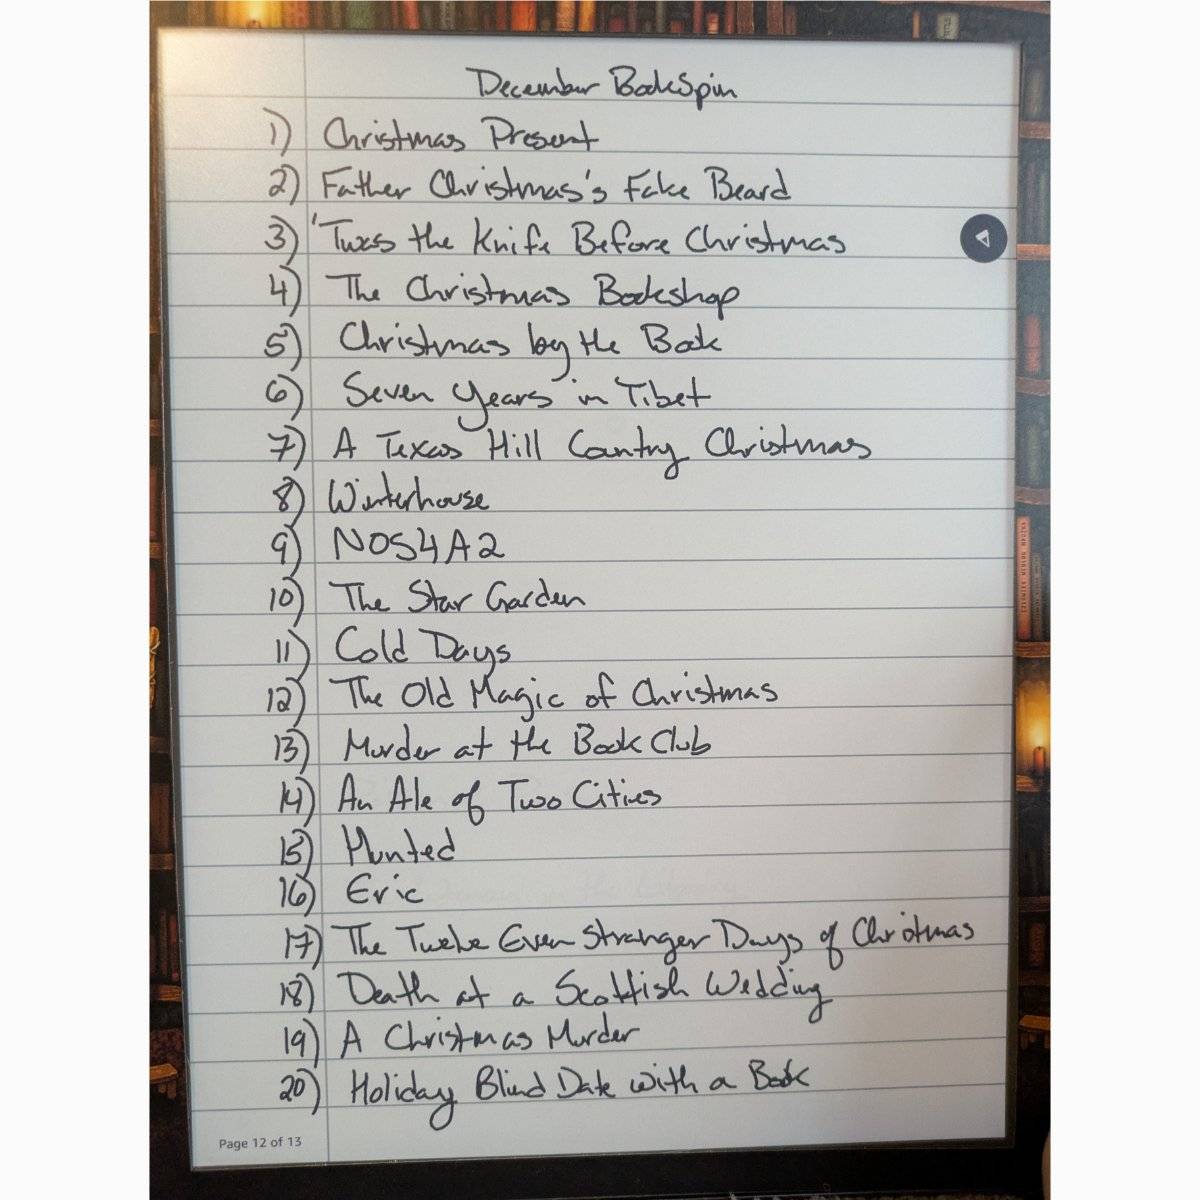 December BookSpin
1) Christmas Present
2) Father Christmas's Fake Beard
3) 'Twas the Knife Before Christmas
4) The Christmas Bookshop
5) Christmas by the Book
6) Seven Years in Tibet
7) A Texas Hill Country Christmas
8) Winterhouse
9) NOS4A2
10) The Star Garden
11) Cold Days
12) The Old Magic of Christmas
13) Murder at the Book Club
14) An Ale of Two Cities
15) Hunted
16) Eric
17) The Twelve Even Stranger Days of Christmas
18) Death at a Scottish Wedding
19) A Christmas Murder
20) Holiday Blind Date with a Book
Page 12 of 13